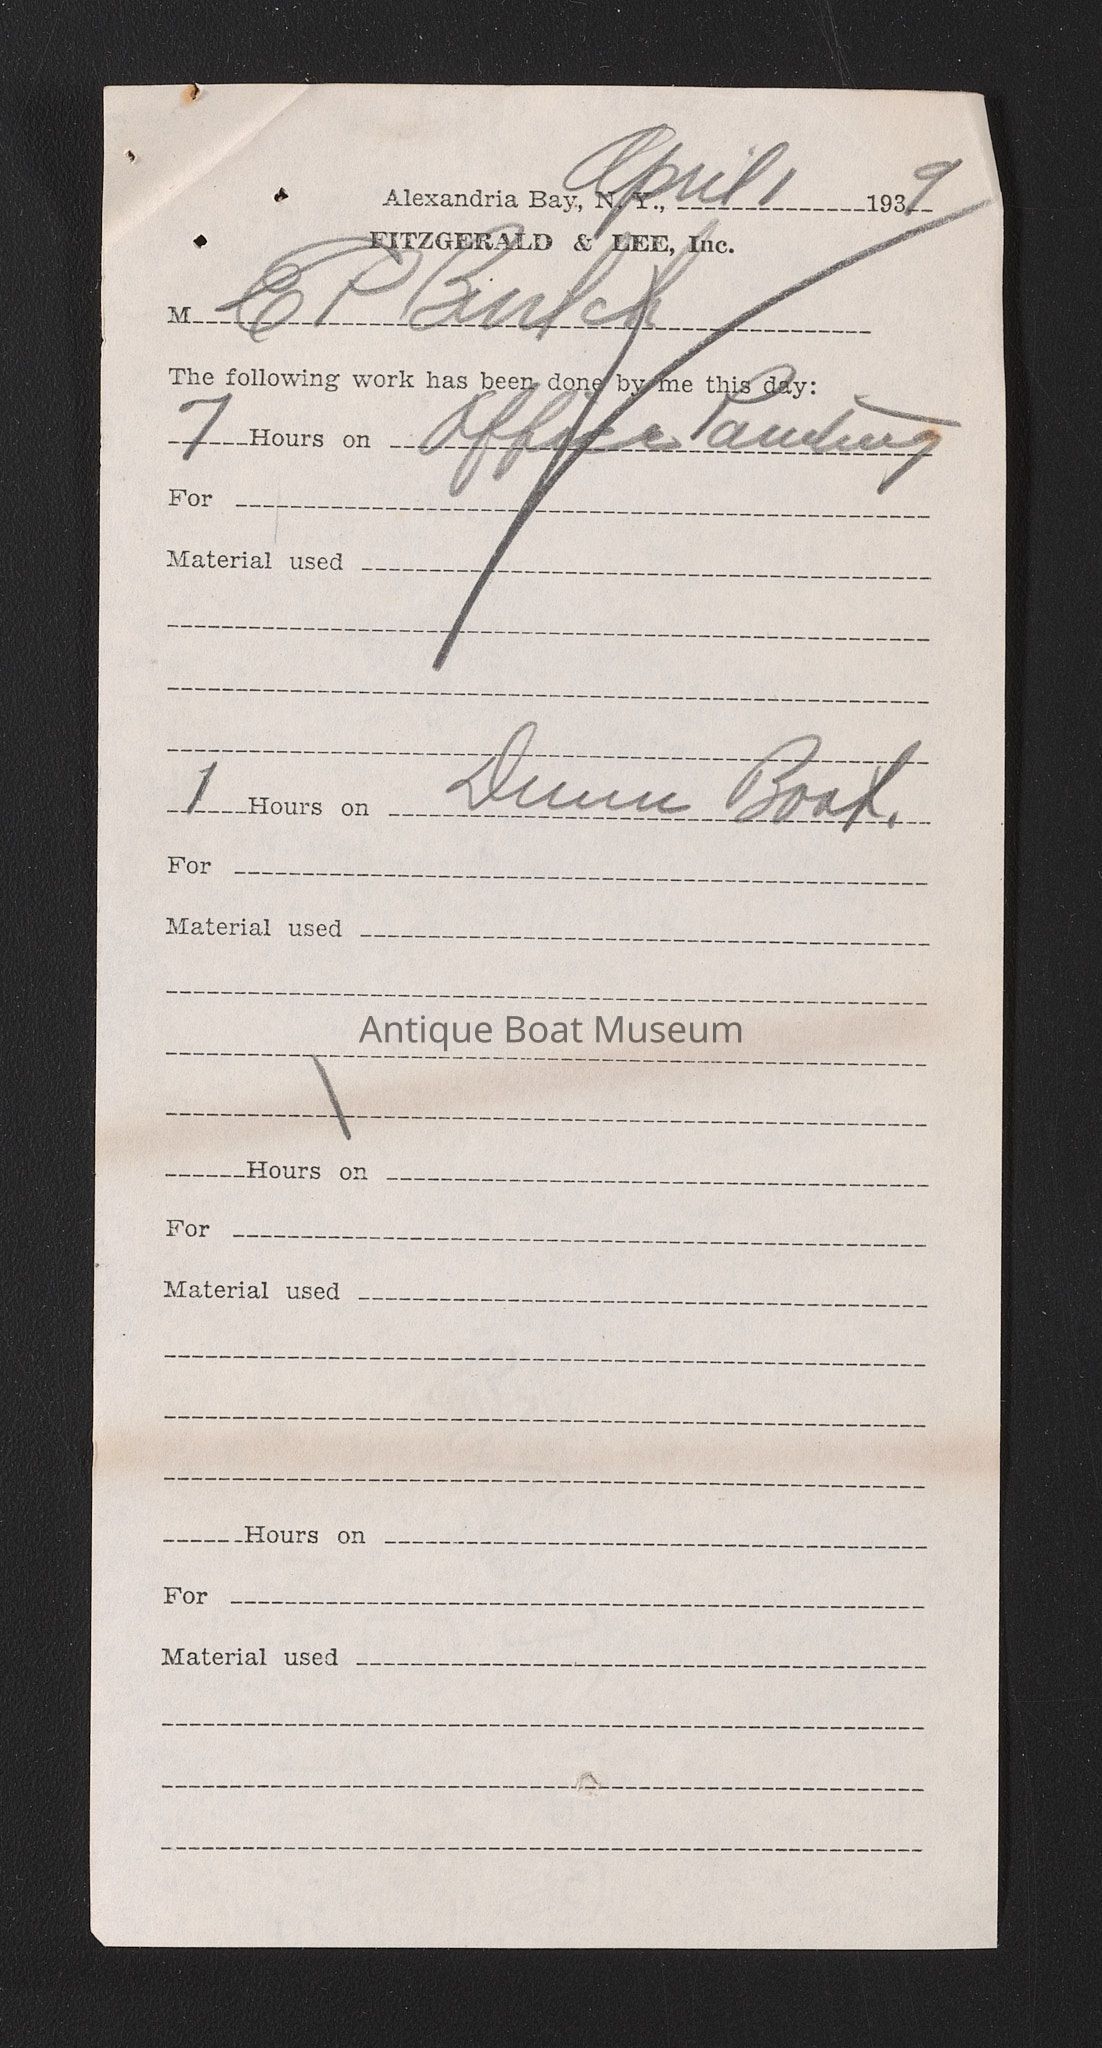 Alexandria Bay, N. Y., April 1 1939
FITZGERALD & LEE, Inc.
M E P
The following work has been done by me this day:
7 Hours on Office Painting
For
Material used
1 Hours on Dunn Boat.
For
Material used
Antique Boat Museum
Hours on
For
Material used
Hours on
For
Material used